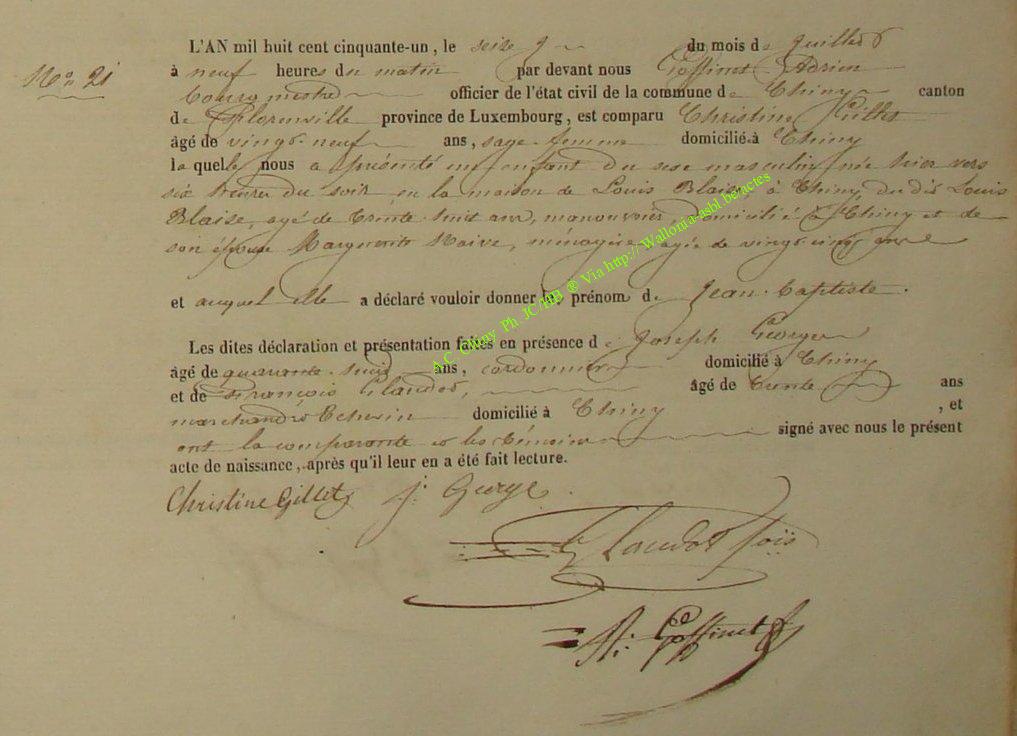 L'AN mil huit cent cinquante-un, le seize du mois de Juillet
No 21
à neuf heures du matin par devant nous Goffinet Adrien
Bourgmestre officier de l'état civil de la commune de Chiny canton
de Florenville province de Luxembourg, est comparu Christine Gillet
âgé de vingt-neuf ans, sage-femme domicilié à Chiny
laquelle nous a présenté un enfant du sexe masculin, née hier vers
six heures du soir, en la maison de Louis Blaise, à Chiny, du dit Louis
Blaise, agé de trente-huit ans, manouvrier, domicilié à Chiny et de
son épouse Marguerite Maire, ménagère, agée de vingt cinq ans
et auquel elle a déclaré vouloir donner le prénom de Jean-Baptiste.
Les dites déclaration et présentation faites en présence de Joseph George
âgé de quarante-huit ans, cordonnier domicilié à Chiny
et de François Claudot, âgé de trente ans
marchand & Echevin domicilié à Chiny, et
ont la comparante et les témoins signé avec nous le présent
acte de naissance, après qu'il leur en a été fait lecture.
Christine Gillet J. George
Claudot fois
A. Goffinet
A.C. Chiny Ph. JC/HB ® Via http:// Wallonia-asbl.be/actes